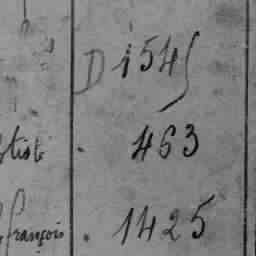 D 1545
tist . 463
françois . 1425